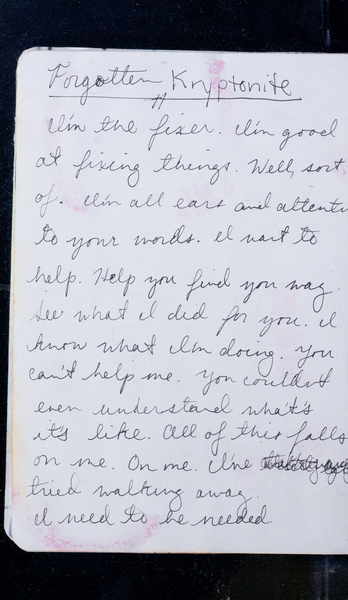 Forgotten Kryptonite
"
I'm the fixer. I'm good
at fixing things. Well, sort
of. I'm all ears and attenti
to your words. I want to
help. Help you find you way.
See what I did for you. I
know what I'm doing. You
can't help me. You couldn't
even understand what's
it's like. All of this falls
on me. On me. I've
tried walking away.
I need to be needed.